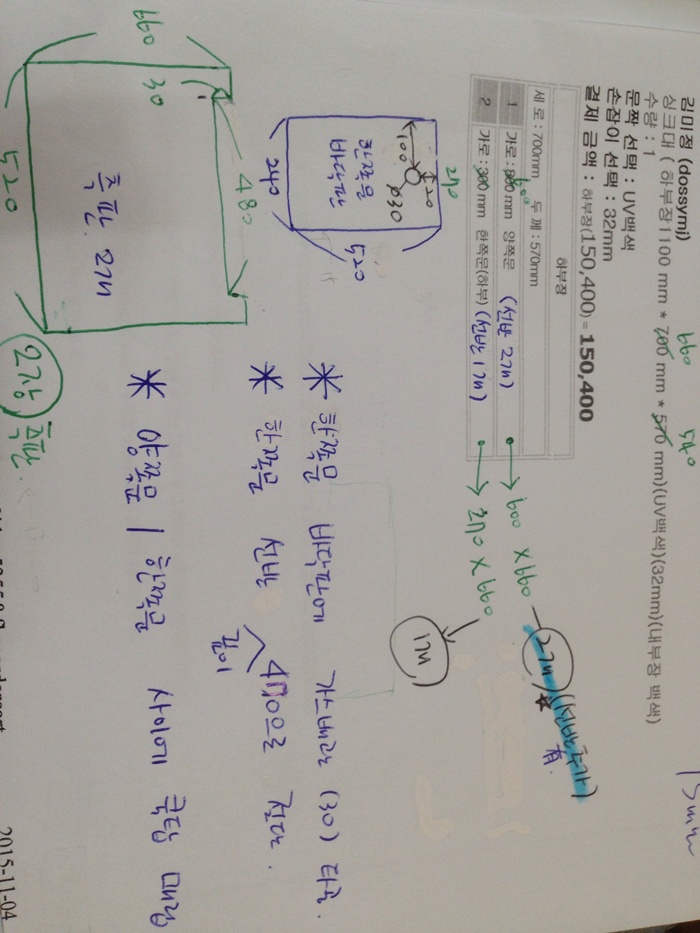 김미정 (dossymj)
싱크대 ( 하부장1100 mm * 700 mm * 570 mm)(UV백색)(32mm)(내부장 백색)
660 540
수량 : 1
문짝 선택 : UV백색
손잡이 선택 : 32mm
결제 금액 : 하부장(150,400) = 150,400
하부장
세로 : 700mm 두께 : 570mm
1 가로 : 800 mm 양쪽문 (선반 2개) → 600 × 660 - 2개
600
2 가로 : 300 mm 한쪽문(하부) (선반 1개) → 270 × 660
270
1개
(선반추가)
15mm
한쪽문
바닥판
100
120
Ø30
240
520
660
30
480
520
측판. 2개
오강 측판.
* 한쪽문 바닥판에 가스배관 (30) 타공.
* 한쪽문 선반 길이 410으로 절단.
* 양쪽문 | 한쪽문 사이에
2015-11-04